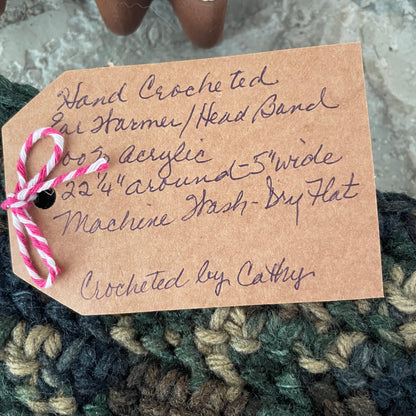 Hand Crocheted
Ear Warmer/Head Band
100% Acrylic
22 1/4" around-5" wide
Machine Wash-Dry Flat
Crocheted by Cathy